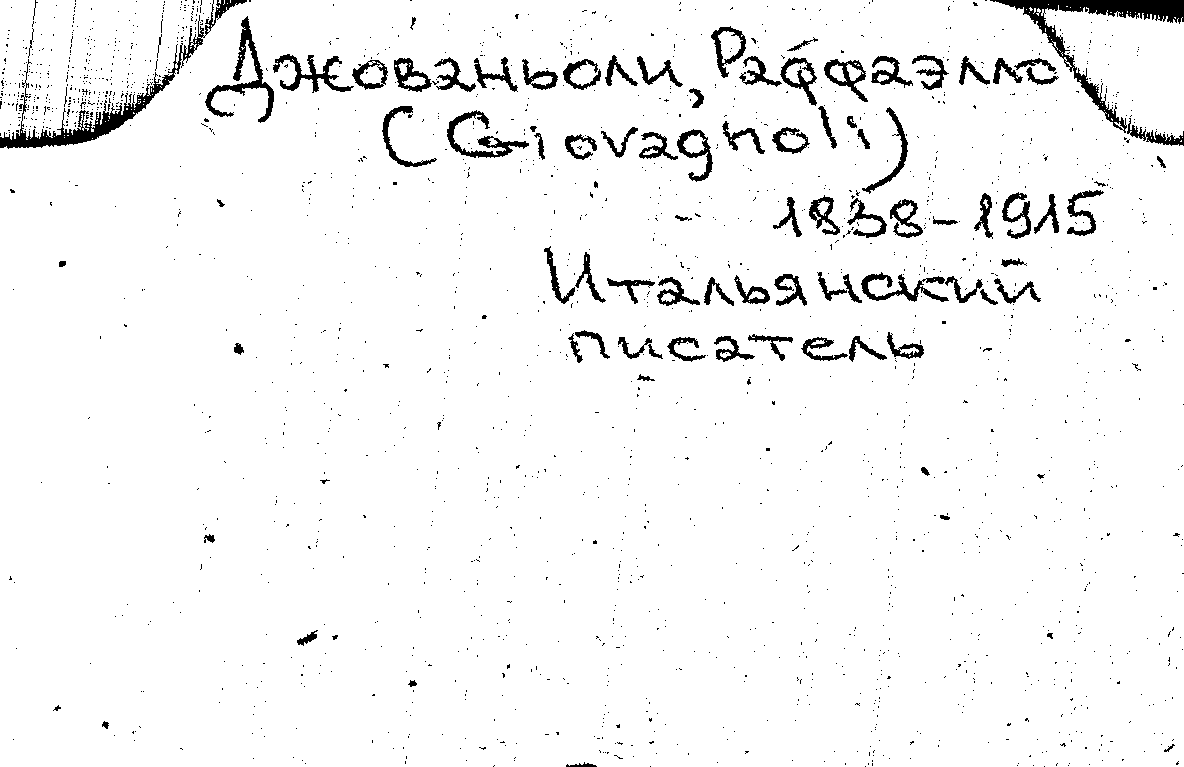 Джованьоли, Раффаэлло
(Giovagnoli)
1838-1915
Итальянский
писатель